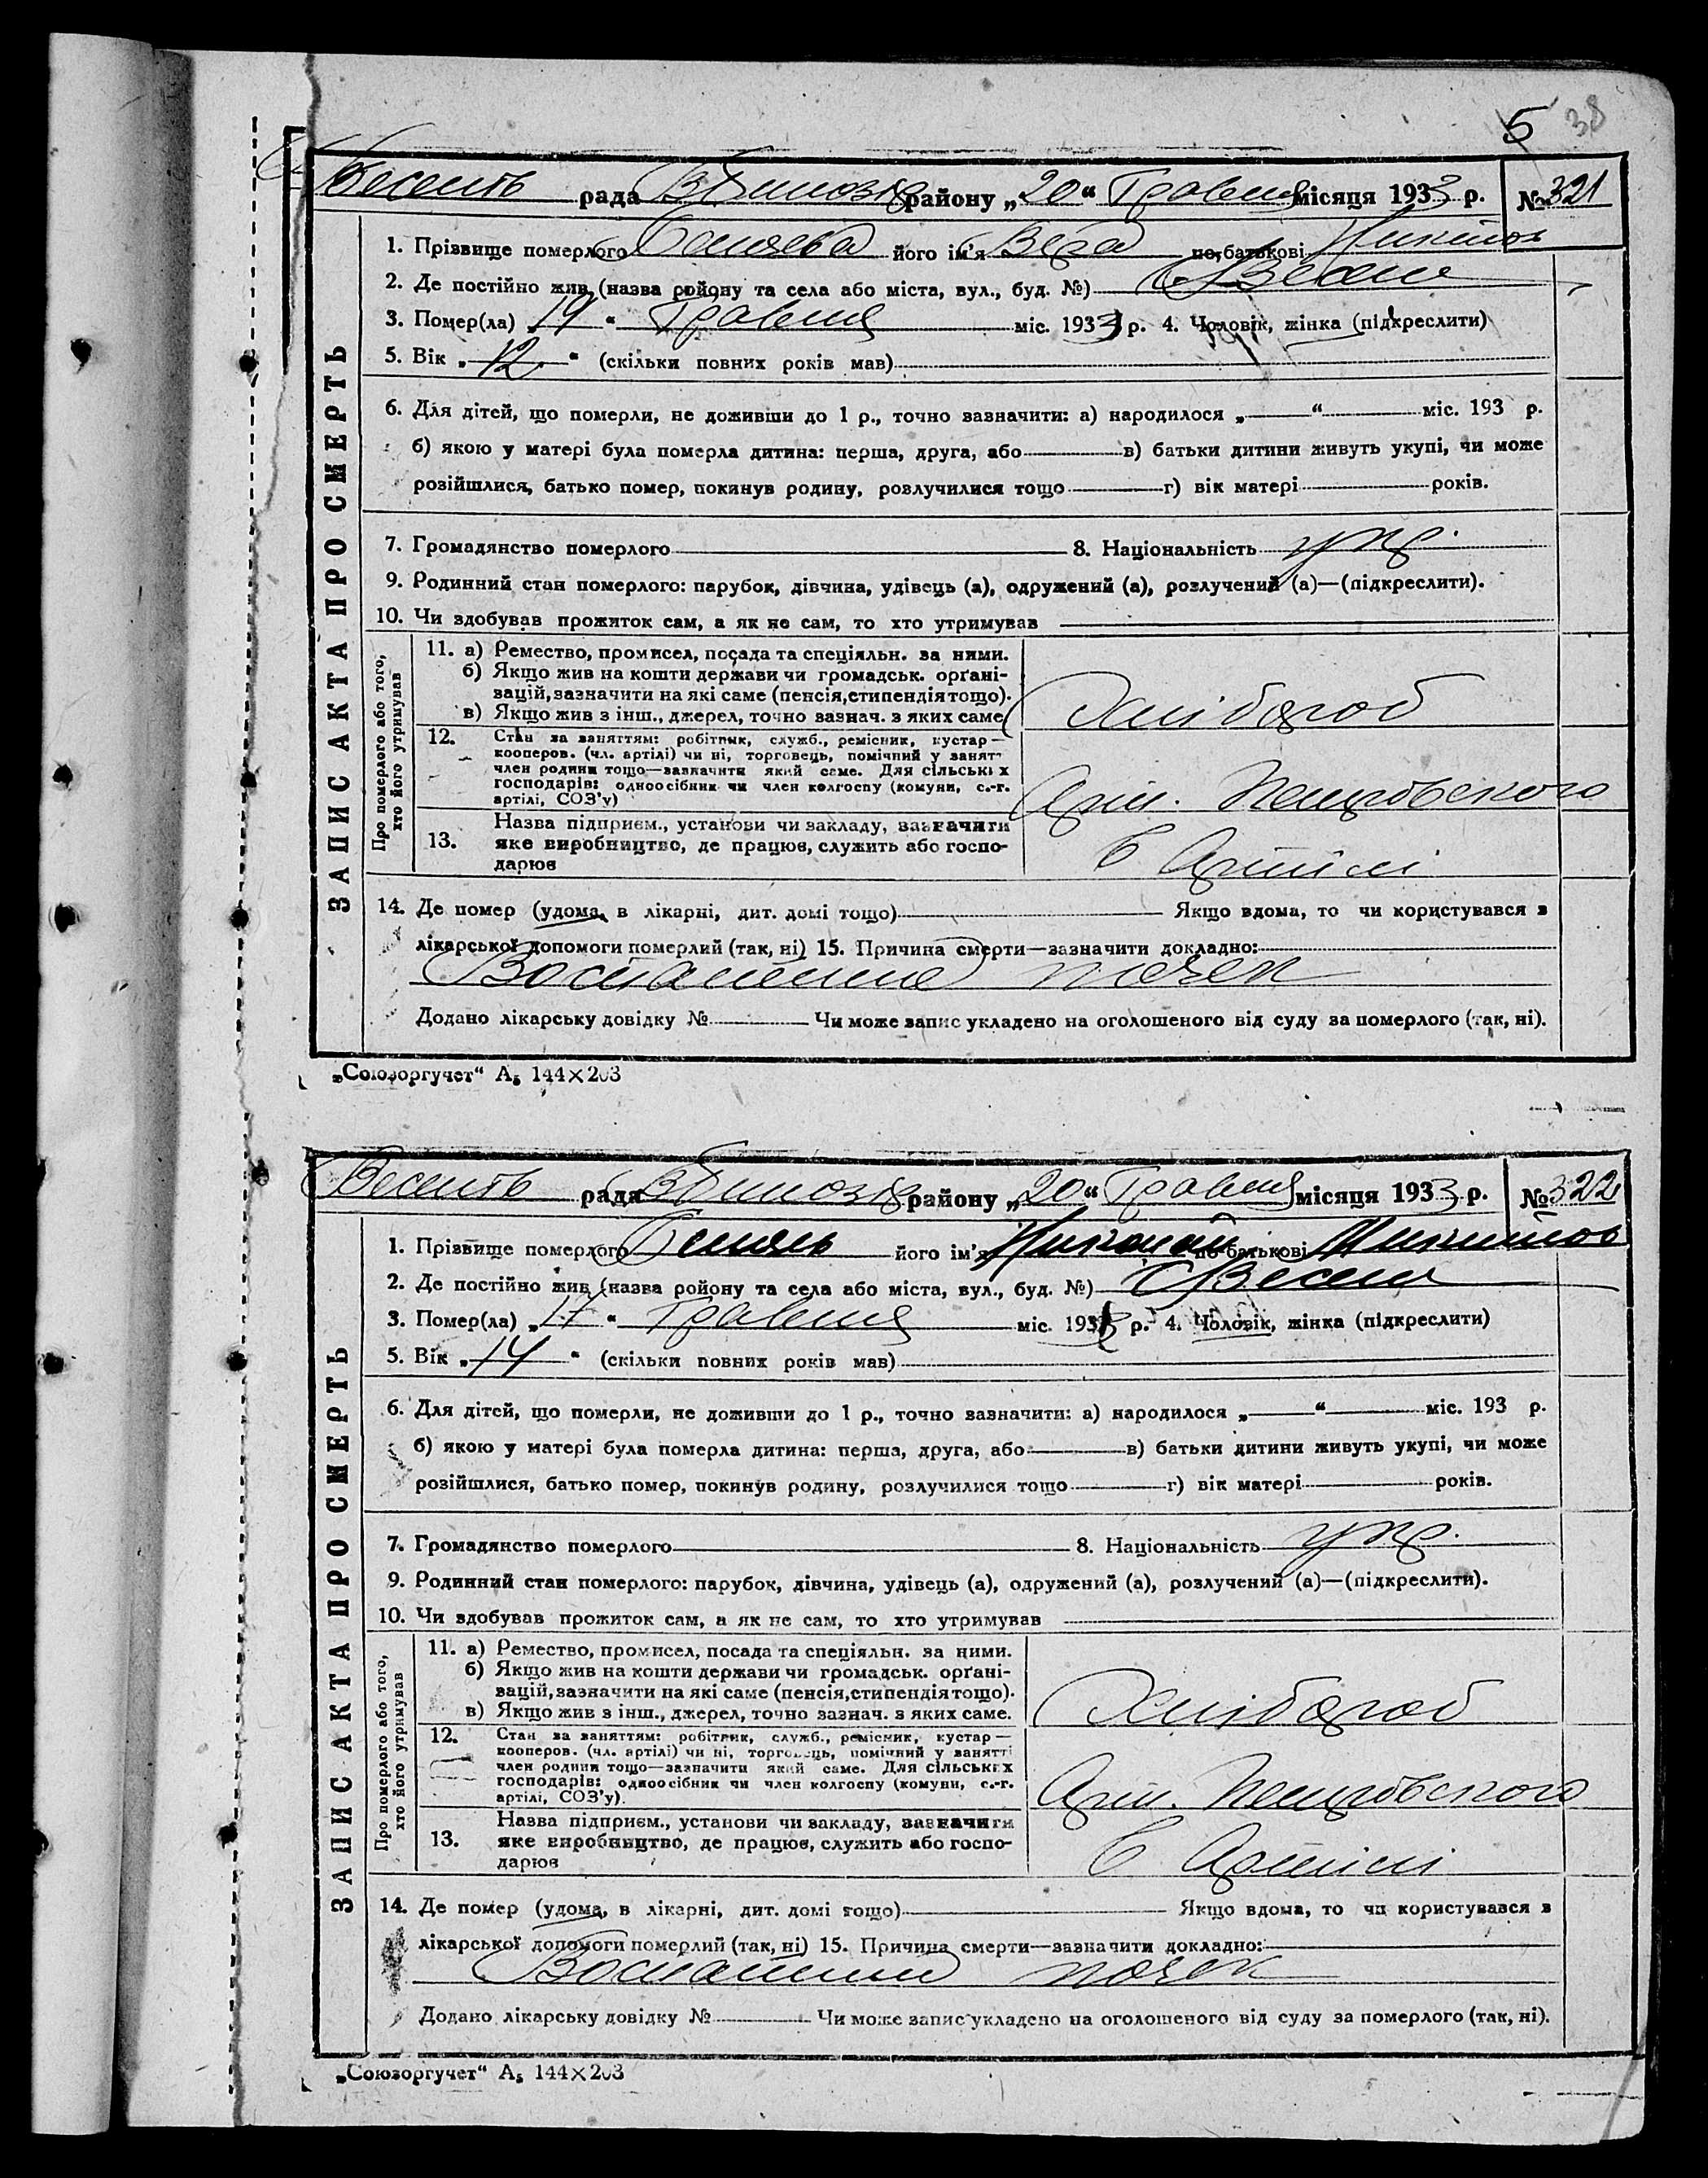 5 38
рада району „20“ Травня місяця 1933 р. № 321
1. Прізвище померлого його ім'я Вера по-батькові
2. Де постійно жив (назва ройону та села або міста, вул., буд. №)
3. Помер(ла) „19“ Травня міс. 1933 р. 4. Чоловік, жінка (підкреслити)
5. Вік „12“ (скільки повних років мав)
6. Для дітей, що померли, не доживши до 1 р., точно зазначити: а) народилося „ “ міс. 193 р.
б) якою у матері була померла дитина: перша, друга, або в) батьки дитини живуть укупі, чи може
розійшлися, батько помер, покинув родину, розлучилися тощо г) вік матері років.
7. Громадянство померлого 8. Національність укр.
9. Родинний стан померлого: парубок, дівчина, удівець (а), одружений (а), розлучений (а)—(підкреслити).
10. Чи здобував прожиток сам, а як не сам, то хто утримував
ЗАПИС АКТА ПРО СМЕРТЬ
Про померлого або того, хто його утримував
11. а) Ремество, промисел, посада та спеціяльн. за ними.
б) Якщо жив на кошти держави чи громадськ. орґані-
зацій, зазначити на які саме (пенсія, стипендія тощо).
в) Якщо жив з інш., джерел, точно зазнач. з яких саме
Хлібороб
12. Стан за заняттям: робітник, служб., ремісник, кустар—
кооперов. (чл. артілі) чи ні, торговець, помічний у занятт
член родини тощо—зазначити який саме. Для сільських
господарів: одноосібник чи член колгоспу (комуни, с.-г.
артілі, СОЗ'у)
Арт. Петровского
13. Назва підприєм., установи чи закладу, зазначити
яке виробництво, де працює, служить або госпо-
дарює
в Артілі
14. Де помер (удома, в лікарні, дит. домі тощо) Якщо вдома, то чи користувався з
лікарської допомоги померлий (так, ні) 15. Причина смерти—зазначити докладно:
Воспаление почек
Додано лікарську довідку № Чи може запис укладено на оголошеного від суду за померлого (так, ні).
„Союзоргучет“ А₅ 144×203
рада району „20“ Травня місяця 1933 р. № 322
1. Прізвище померлого його ім'я Николай по-батькові
2. Де постійно жив (назва ройону та села або міста, вул., буд. №)
3. Помер(ла) „17“ Травня міс. 1933 р. 4. Чоловік, жінка (підкреслити)
5. Вік „14“ (скільки повних років мав)
6. Для дітей, що померли, не доживши до 1 р., точно зазначити: а) народилося „ “ міс. 193 р.
б) якою у матері була померла дитина: перша, друга, або в) батьки дитини живуть укупі, чи може
розійшлися, батько помер, покинув родину, розлучилися тощо г) вік матері років.
7. Громадянство померлого 8. Національність укр.
9. Родинний стан померлого: парубок, дівчина, удівець (а), одружений (а), розлучений (а)—(підкреслити).
10. Чи здобував прожиток сам, а як не сам, то хто утримував
ЗАПИС АКТА ПРО СМЕРТЬ
Про померлого або того, хто його утримував
11. а) Ремество, промисел, посада та спеціяльн. за ними.
б) Якщо жив на кошти держави чи громадськ. орґані-
зацій, зазначити на які саме (пенсія, стипендія тощо).
в) Якщо жив з інш., джерел, точно зазнач. з яких саме.
Хлібороб
12. Стан за заняттям: робітник, служб., ремісник, кустар—
кооперов. (чл. артілі) чи ні, торговець, помічний у занятті
член родини тощо—зазначити який саме. Для сільських
господарів: одноосібник чи член колгоспу (комуни, с.-г.
артілі, СОЗ'у).
Арт. Петровского
13. Назва підприєм., установи чи закладу, зазначити
яке виробництво, де працює, служить або госпо-
дарює
в Артілі
14. Де помер (удома, в лікарні, дит. домі тощо) Якщо вдома, то чи користувався з
лікарської допомоги померлий (так, ні) 15. Причина смерти—зазначити докладно:
Воспаление почек
Додано лікарську довідку № Чи може запис укладено на оголошеного від суду за померлого (так, ні).
„Союзоргучет“ А₅ 144×203